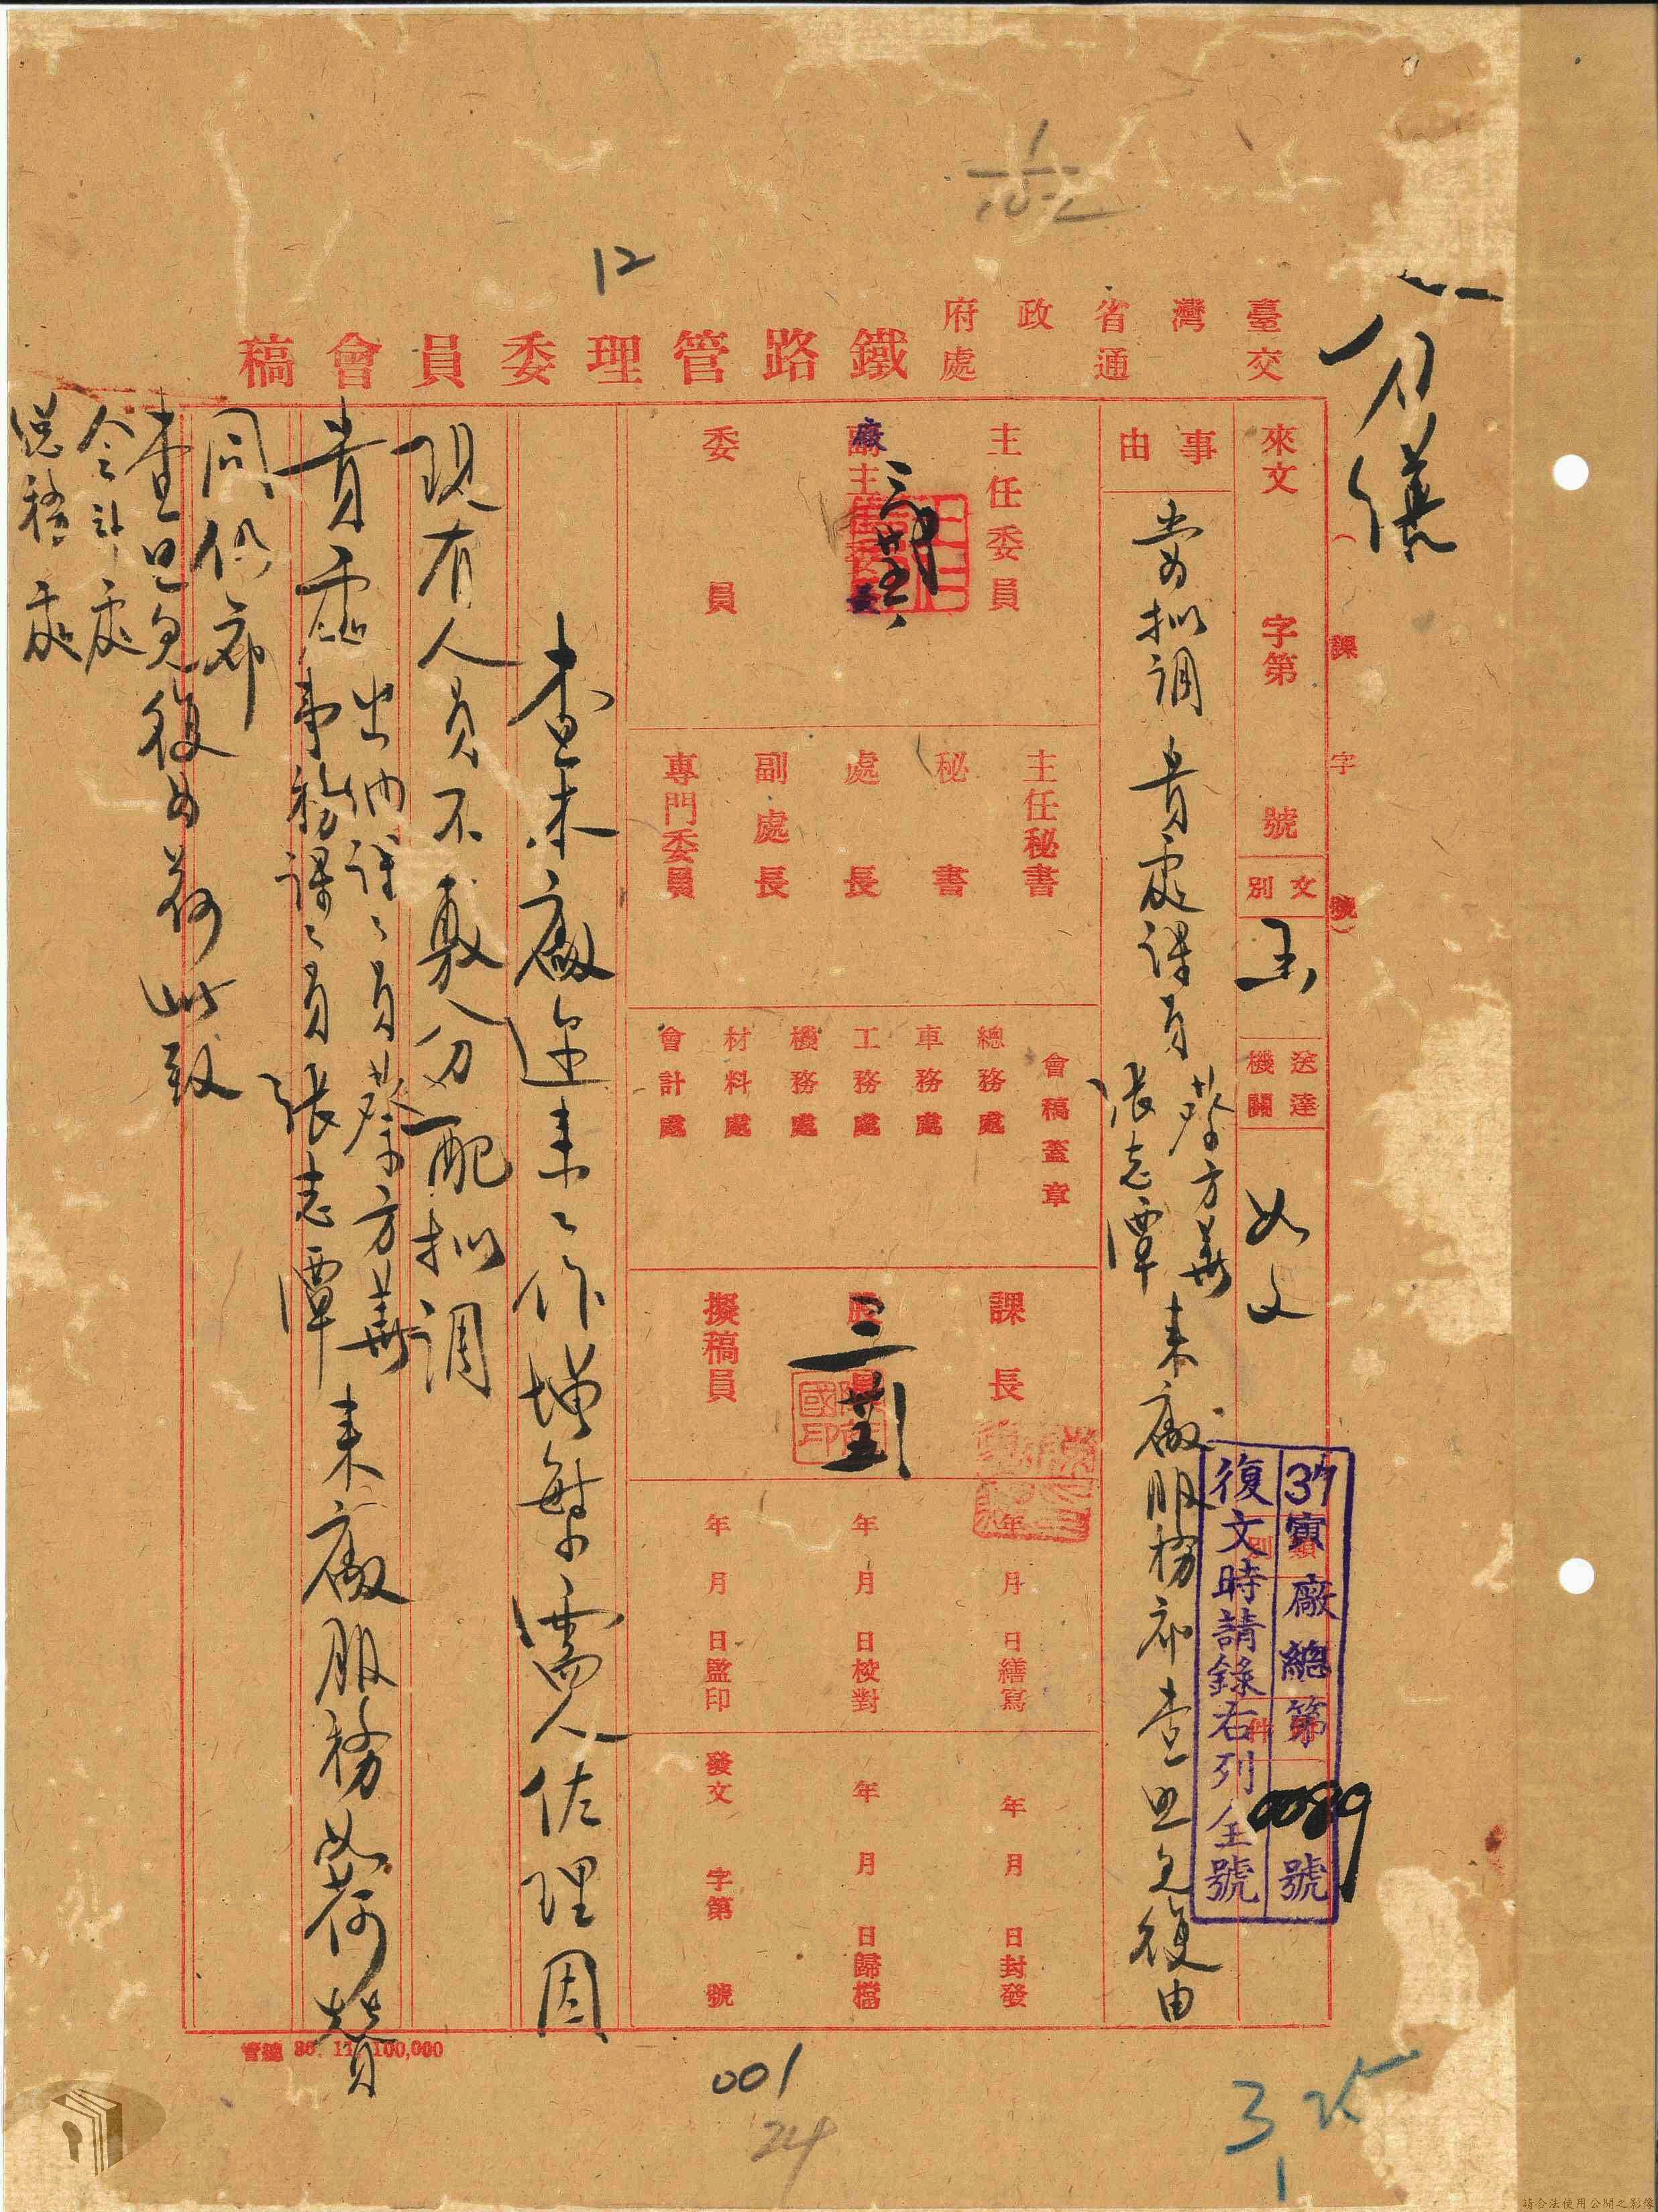 臺灣省政府
交通處
鐵路管理委員會稿
12
(課字號)
來文 字第 號
文別 函
送達機關 如文
類別
件
37寅廠總第0089號
復文時請錄右列全號
事由
為擬調 貴處課員蔡方華
張志潭
來廠服務希查照見復由
主任委員
廠長
委員
主任秘書
秘書
處長
副處長
專門委員
會稿蓋章
總務處
車務處
工務處
機務處
材料處
會計處
課長
股長
三 廿五
擬稿員
年月日繕寫
年月日校對
年月日監印
年月日封發
年月日歸檔
發文 字第 號
查本廠邇來工作增繁需人佐理因
現有人員不敷分配擬調
貴處出納課課員蔡方華
事務課課員張志潭
來廠服務如荷贊
同仍希
查照見復為荷此致
會計處
總務處
36. 11. 100,000
001
24
3
請合法使用公開之影像